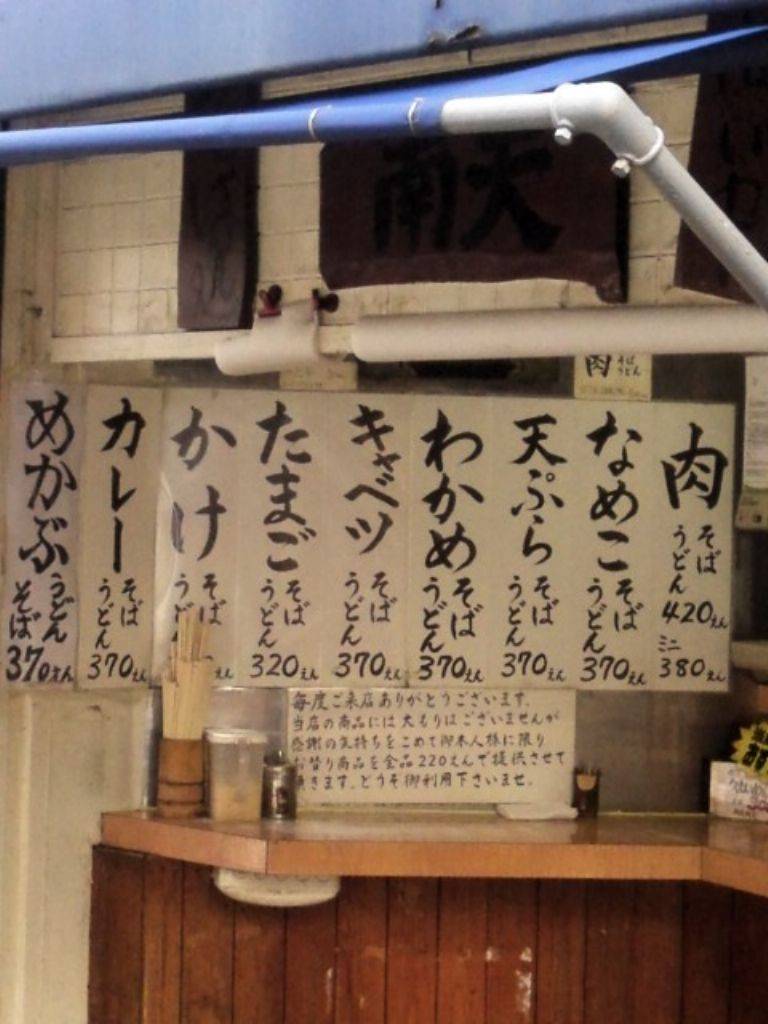 天南
肉
そば
うどん
肉
そば
うどん
420えん
ミニ
380えん
なめこ
そば
うどん
370えん
天ぷら
そば
うどん
370えん
わかめ
そば
うどん
370えん
キャベツ
そば
うどん
370えん
たまご
そば
うどん
320えん
かけ
そば
うどん
えん
カレー
そば
うどん
370えん
めかぶ
うどん
そば
370えん
毎度ご来店ありがとうございます。
当店の商品には大もりはございませんが
感謝の気持ちをこめて御本人様に限り
お替り商品を全品220えんで提供させて
頂きます。どうぞ御利用下さいませ。